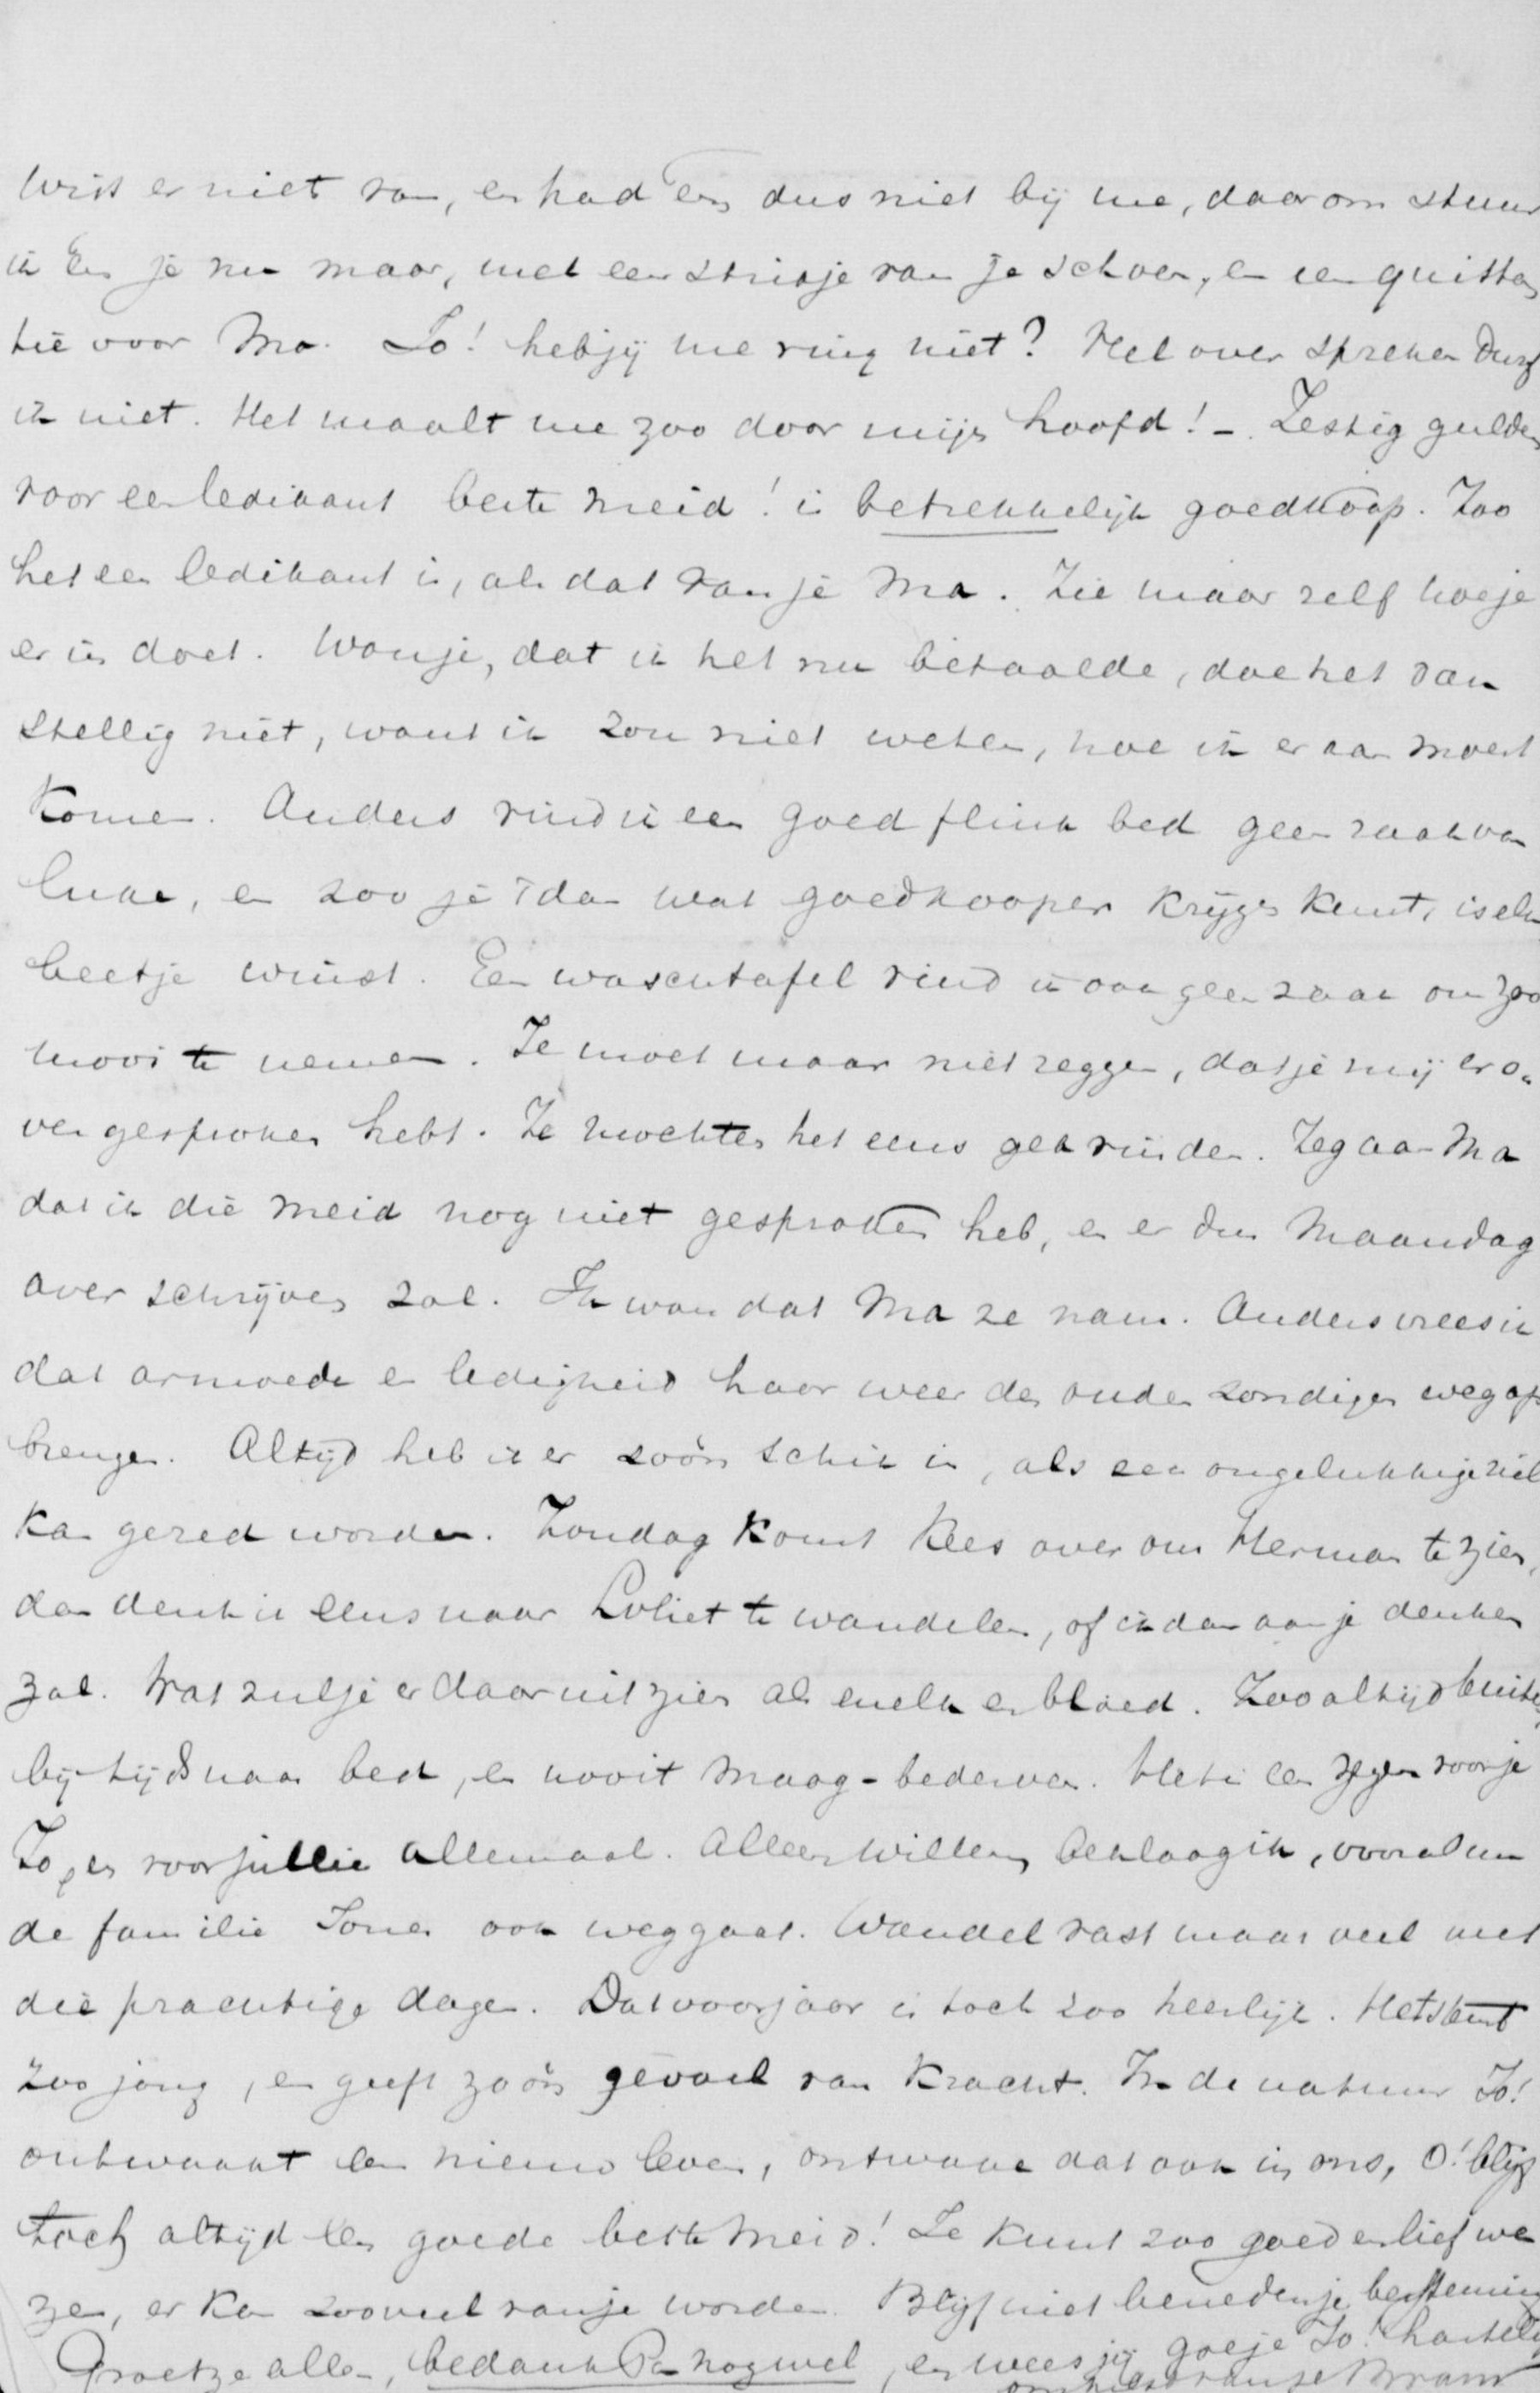 wist er niet van, en had een dus niet bij me, daarom stuur
ik een je nu maar, met een strikje van je schoen, en een quitan
tie voor Ma. Jo! heb jij me ring niet? Het over spreken durf
ik niet. Het maalt me zoo door mijn hoofd! – Zestig gulden
voor een ledikant beste meid! is betrekkelijk goedkoop. Zoo
het een ledikant is, als dat van je Ma. Zie maar zelf hoe je
er in doet. Wou je, dat ik het nu betaalde, doe het dan
stellig niet, want ik zou niet weten, hoe ik er aan moest
komen. Anders vind ik een goed flink bed geen zaak van
luxe, en zoo je 't dan wat goedkooper krijgen kunt, is een
beetje winst. Een waschtafel vind ik ook geen zaak om zoo
mooi te nemen. Je moet maar niet zeggen, dat je mij er o-
ver gesproken hebt. Ze mochten het eens gek vinden. Zeg aan Ma
dat ik die meid nog niet gesproken heb, en er dus Maandag
over schrijven zal. Ik wou dat Ma ze nam. Anders vrees ik
dat armoede en ledigheid haar weer den ouden zondigen weg op
brengen. Altijd heb ik er zoo'n schik in, als een ongelukkige ziel
kan gered worden. Zondag komt Kees over om Herman te zien,
dan denk ik eens naar te wandelen, of ik dan aan je denken
zal. Wat zul je er daar uit zien als melk en bloed. Zoo altijd buiten
bij tijds naar bed, en nooit maag-bederven. Het is een zegen voor je
Jo, en voor jullie allemaal. Alleen Willem beklaag ik, vooral nu
de familie ook weggaat. Wandel vast maar veel met
die prachtige dagen. Dat voorjaar is toch zoo heerlijk. Het stemt
zoo jong, en geeft zoo'n gevoel van kracht. In de natuur Jo!
ontwaakt een nieuw leven, ontwake dat ook in ons, O! blijf
toch altijd een goede beste meid! Je kunt zoo goed en lief we
zen, er kan zooveel van je worden. Blijf niet beneden je bestemming
Groet ze allen, bedank Pa nog wel, en wees jij goeje Jo! hartelijk
van je Bram